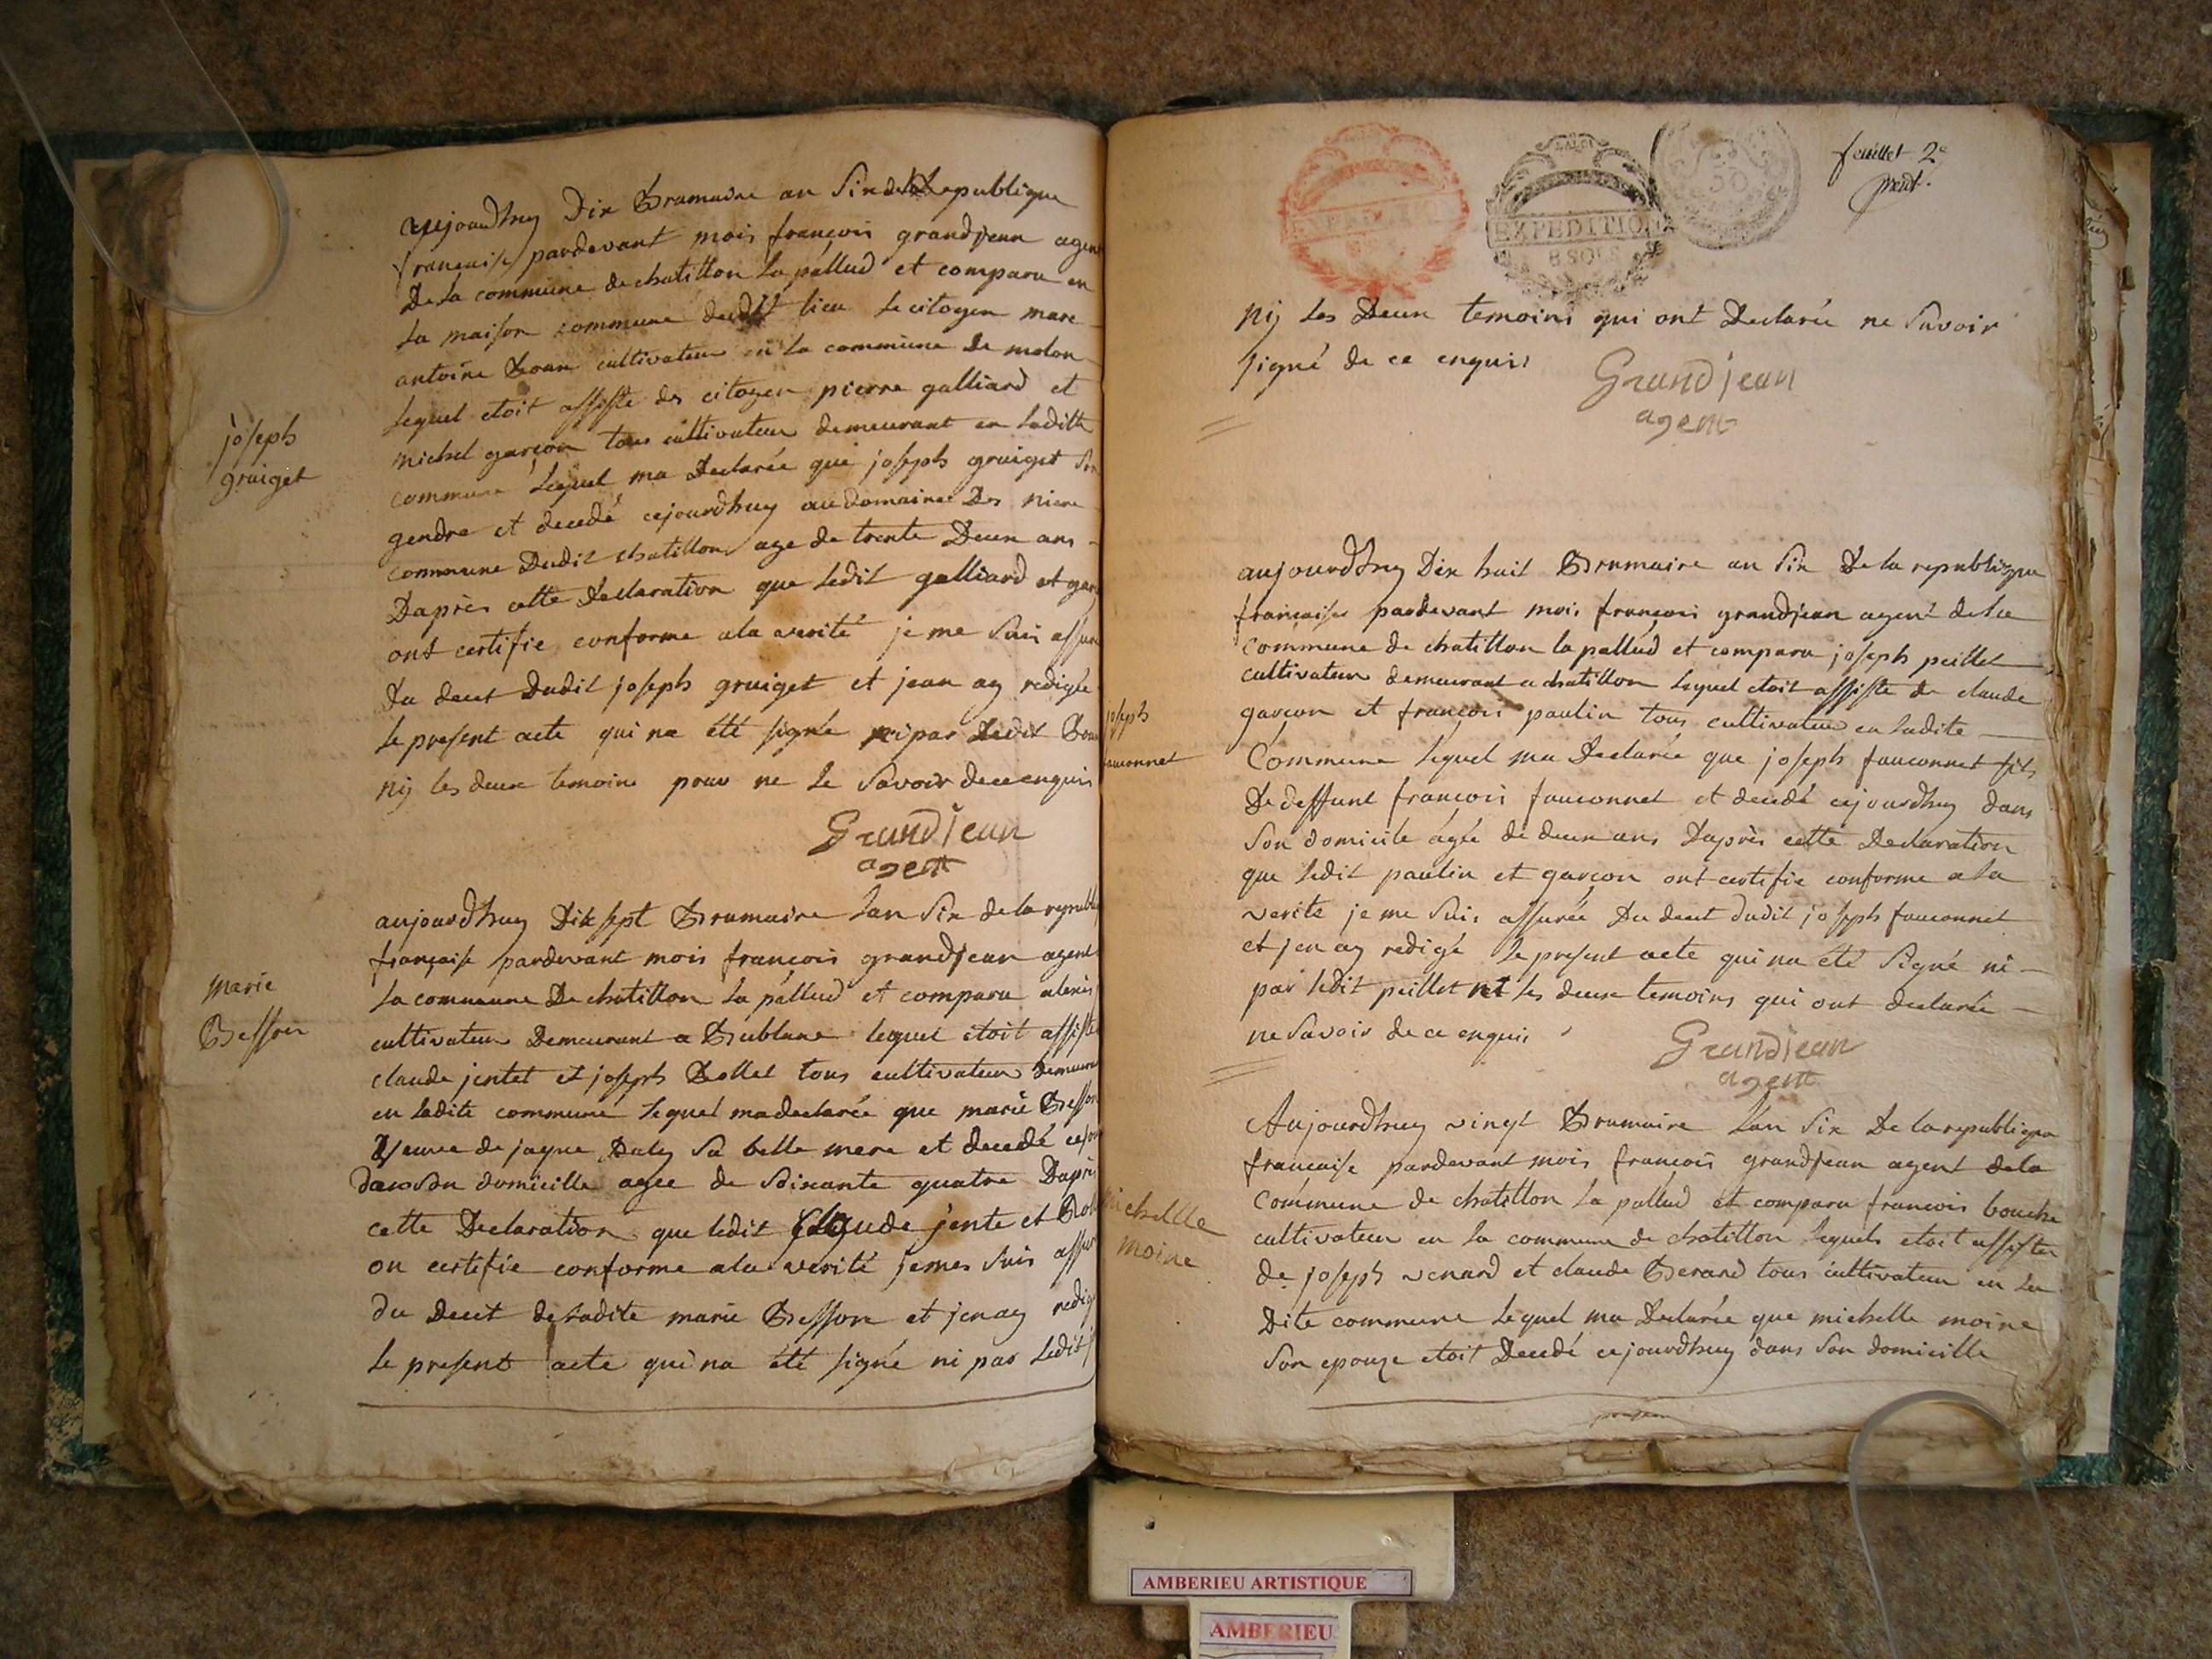 aujourdhuy Dix Brumaire an Six de la Republique
francaise pardevant mois françois grandjean agent
De la commune de chatillon la pallud et comparu en
la maison commune dudit lieu le citoyen marc
antoine cultivateur en la commune de molon
lequel etoit assiste des citoyen pierre galliard et
michel garçon tous cultivateur demeurant en laditte
commune lequel ma Declarée que joseph gruiget son
gendre et decedé cejourdhuy au domaine Des
commune Dudit chatillon age de trente Deux ans
Daprès cette Declaration que ledit galliard et gar
ont certifie conforme a la verité je me suis assure
Du decet Dudit joseph gruiget et jean ay redigée
le present acte qui na été signé ni par Ledit
nij les deux temoins pour ne le savoir de ce enquis
Grandjean
agent
joseph
gruiget
aujourdhuy Dixsept Brumaire lan Six de la republi
française pardevant mois francois grandjean agent
la commune De chatillon la pallud et comparu alexis
cultivateur Demeurant a Bublane lequel etoit assiste
claude jentet et joseph Rollet tous cultivateur demeura
en ladite commune lequel ma declarée que marie Besson
Veuve de jaque Duley sa belle mere et decedé cejour
dans son domicille agee de soixante quatre Daprès
cette Declaration que ledit Claude jente et Roll
on certifie conforme a la verité jemes suis assur
du decet de ladite marie Besson et jen ay redig
le present acte qui na été signé ni par ledit
marie
Besson
feuillet 2e
EXPEDITION
8 SOLS
EXPEDITION
50
nij les Deux temoins qui ont Declarée ne savoir
signé de ce enquis
Grandjean
agent
aujourdhuy Dix huit Brumaire an Six De la republique
francaise pardevant mois françois grandjean agent de la
commune de chatillon la pallud et comparu joseph peillet
cultivateur demeurant a chatillon lequel etoit assiste de claude
garçon et françois paulin tous cultivateur en ladite
Commune lequel ma Declarée que joseph fauconnet fils
De deffunt françois fauconnet et decedé cejourdhuy dans
son domicile agée de deux ans Daprès cette Declaration
que ledit paulin et garcon ont certifie conforme a la
verite je me suis assurée Du decet dudit joseph fauconnet
et jen ay redigé le present acte qui na eté signé ni
par ledit peillet ni les deux temoins qui ont declarée
ne savoir de ce enquis
Grandjean
agent
joseph
fauconnet
Aujourdhuy vingt Brumaire Lan Six De la republique
francaise pardevant mois francois grandjean agent de la
Commune de chatillon la pallud et comparu francois bouche
cultivateur en la commune de chatillon lequels etoit assister
de joseph venard et claude Berard tous cultivateur en la
Dite commune lequel ma Declarée que michelle moine
son epouze etoit Decedé cejourdhuy dans son domicille
michelle
moine
AMBERIEU ARTISTIQUE
AMBERIEU